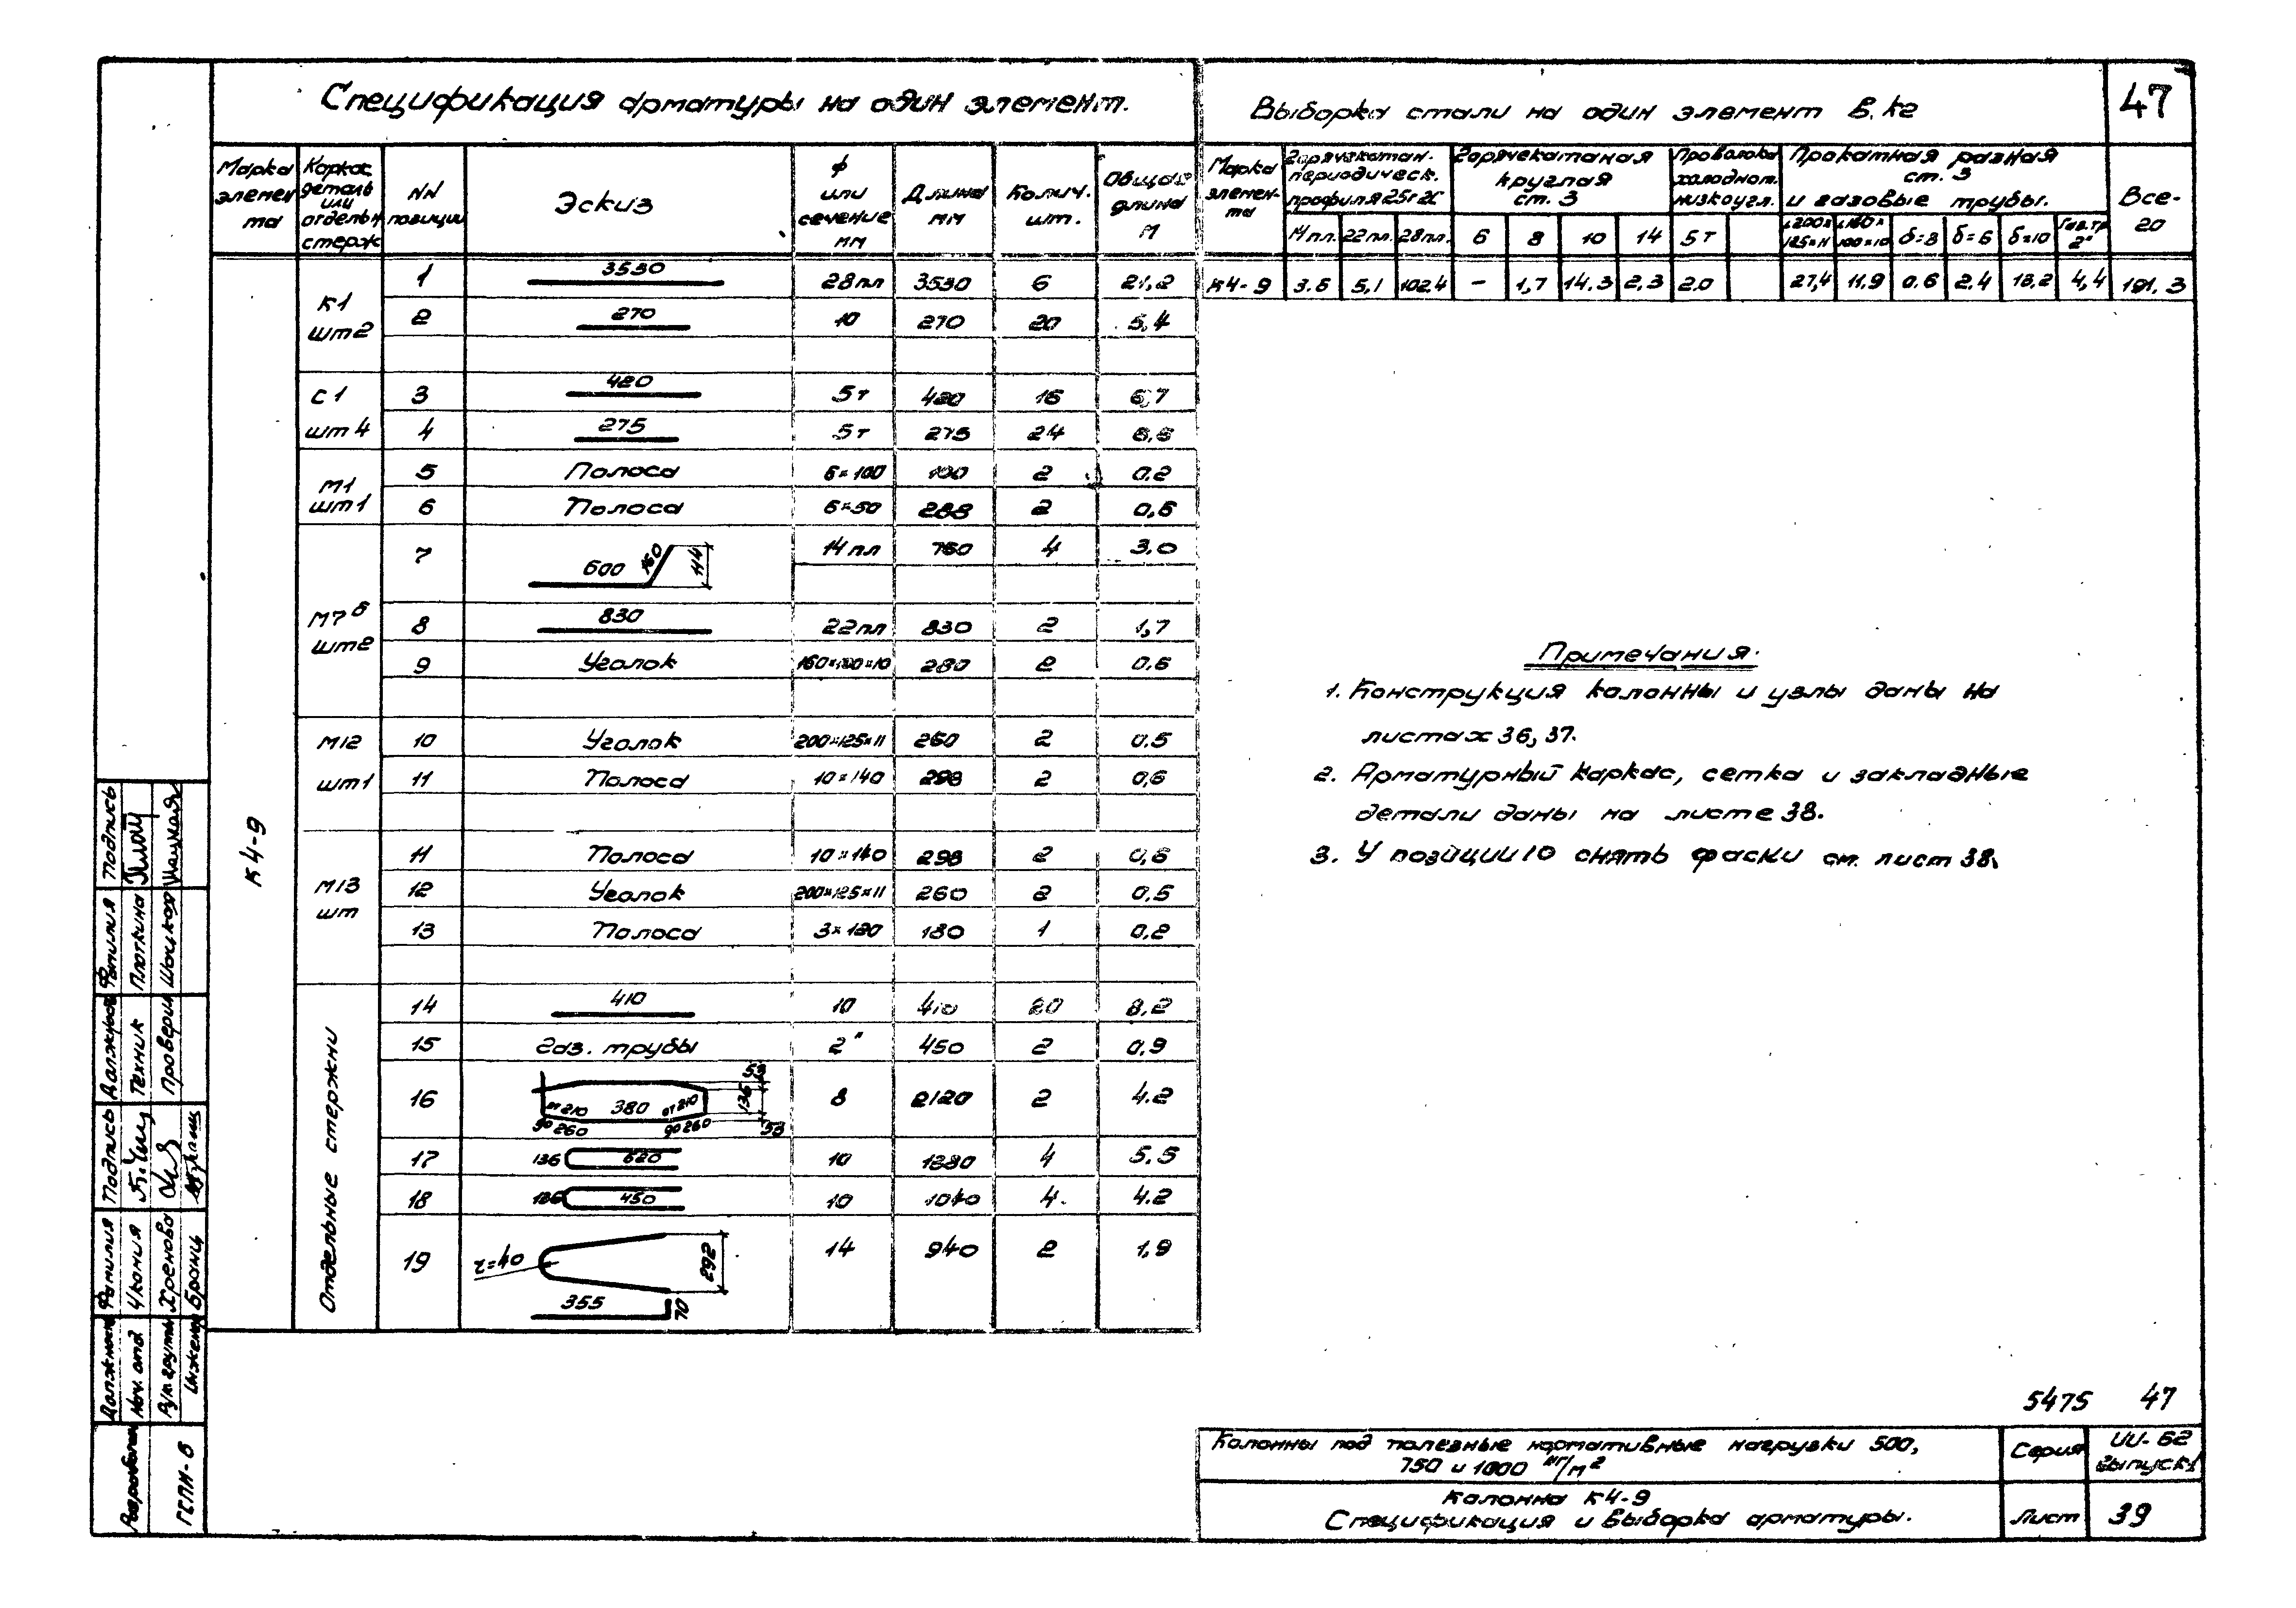 Спецификация арматуры на один элемент.
Выборка стали на один элемент в кг
47
Марка элемента
Каркас деталь или отдельн стерж
NN позиции
Эскиз
ф или сечение мм
Длина мм
Колич. шт.
Общая длина м
К4-9
К1 шт2
1 3530 28пл 3530 6 21,2
2 270 10 270 20 5,4
С1 шт4
3 420 5т 420 16 6,7
4 275 5т 275 24 6,6
М1 шт1
5 Полоса 6×100 100 2 0.2
6 Полоса 6×50 288 2 0,6
М7б шт2
7 600 160 144 14пл 760 4 3.0
8 830 22пл 830 2 1,7
9 Уголок 160×100×10 280 2 0.6
М12 шт1
10 Уголок 200×125×11 260 2 0.5
11 Полоса 10×140 298 2 0,6
М13 шт
11 Полоса 10×140 298 2 0,6
12 Уголок 200×125×11 260 2 0.5
13 Полоса 3×180 180 1 0.2
Отдельные стержни
14 410 10 410 20 8.2
15 Газ. трубы 2" 450 2 0.9
16 от 210 380 от 210 до 260 до 260 136 58 58 8 2120 2 4.2
17 136 620 10 1380 4 5.5
18 136 450 10 1040 4. 4.2
19 r=40 292 355 70 14 940 2 1,9
Марка элемента
Горячекатан. периодическ. профиля 25г2С
Горячекатаная круглая ст. 3
Проволока холоднот. низкоугл.
Прокатная разная ст. 3 и газовые трубы.
Всего
14пл. 22пл. 28пл. 6 8 10 14 5т ∟200×125×11 ∟160×100×10 δ=8 δ=6 δ=10 Газ.тр 2"
К4-9 3.6 5,1 102.4 – 1,7 14.3 2,3 2.0 27,4 11,9 0.6 2.4 13,2 4,4 191.3
Примечания.
1. Конструкция колонны и узлы даны на
листах 36, 37.
2. Арматурный каркас, сетка и закладные
детали даны на листе 38.
3. У позиции 10 снять фаски см. лист 38.
5475 47
Колонны под полезные нормативные нагрузки 500,
750 и 1000 кг/м2
Серия
ИИ-62 выпуск 1
Колонна К4-9
Спецификация и выборка арматуры.
Лист
39
Подпись
Фамилия Плоткина
Должность Техник Проверил
Подпись
Фамилия Хренова Бранц
Должность Нач. отд Рук группы Инженер
Разработан ГСПИ-6